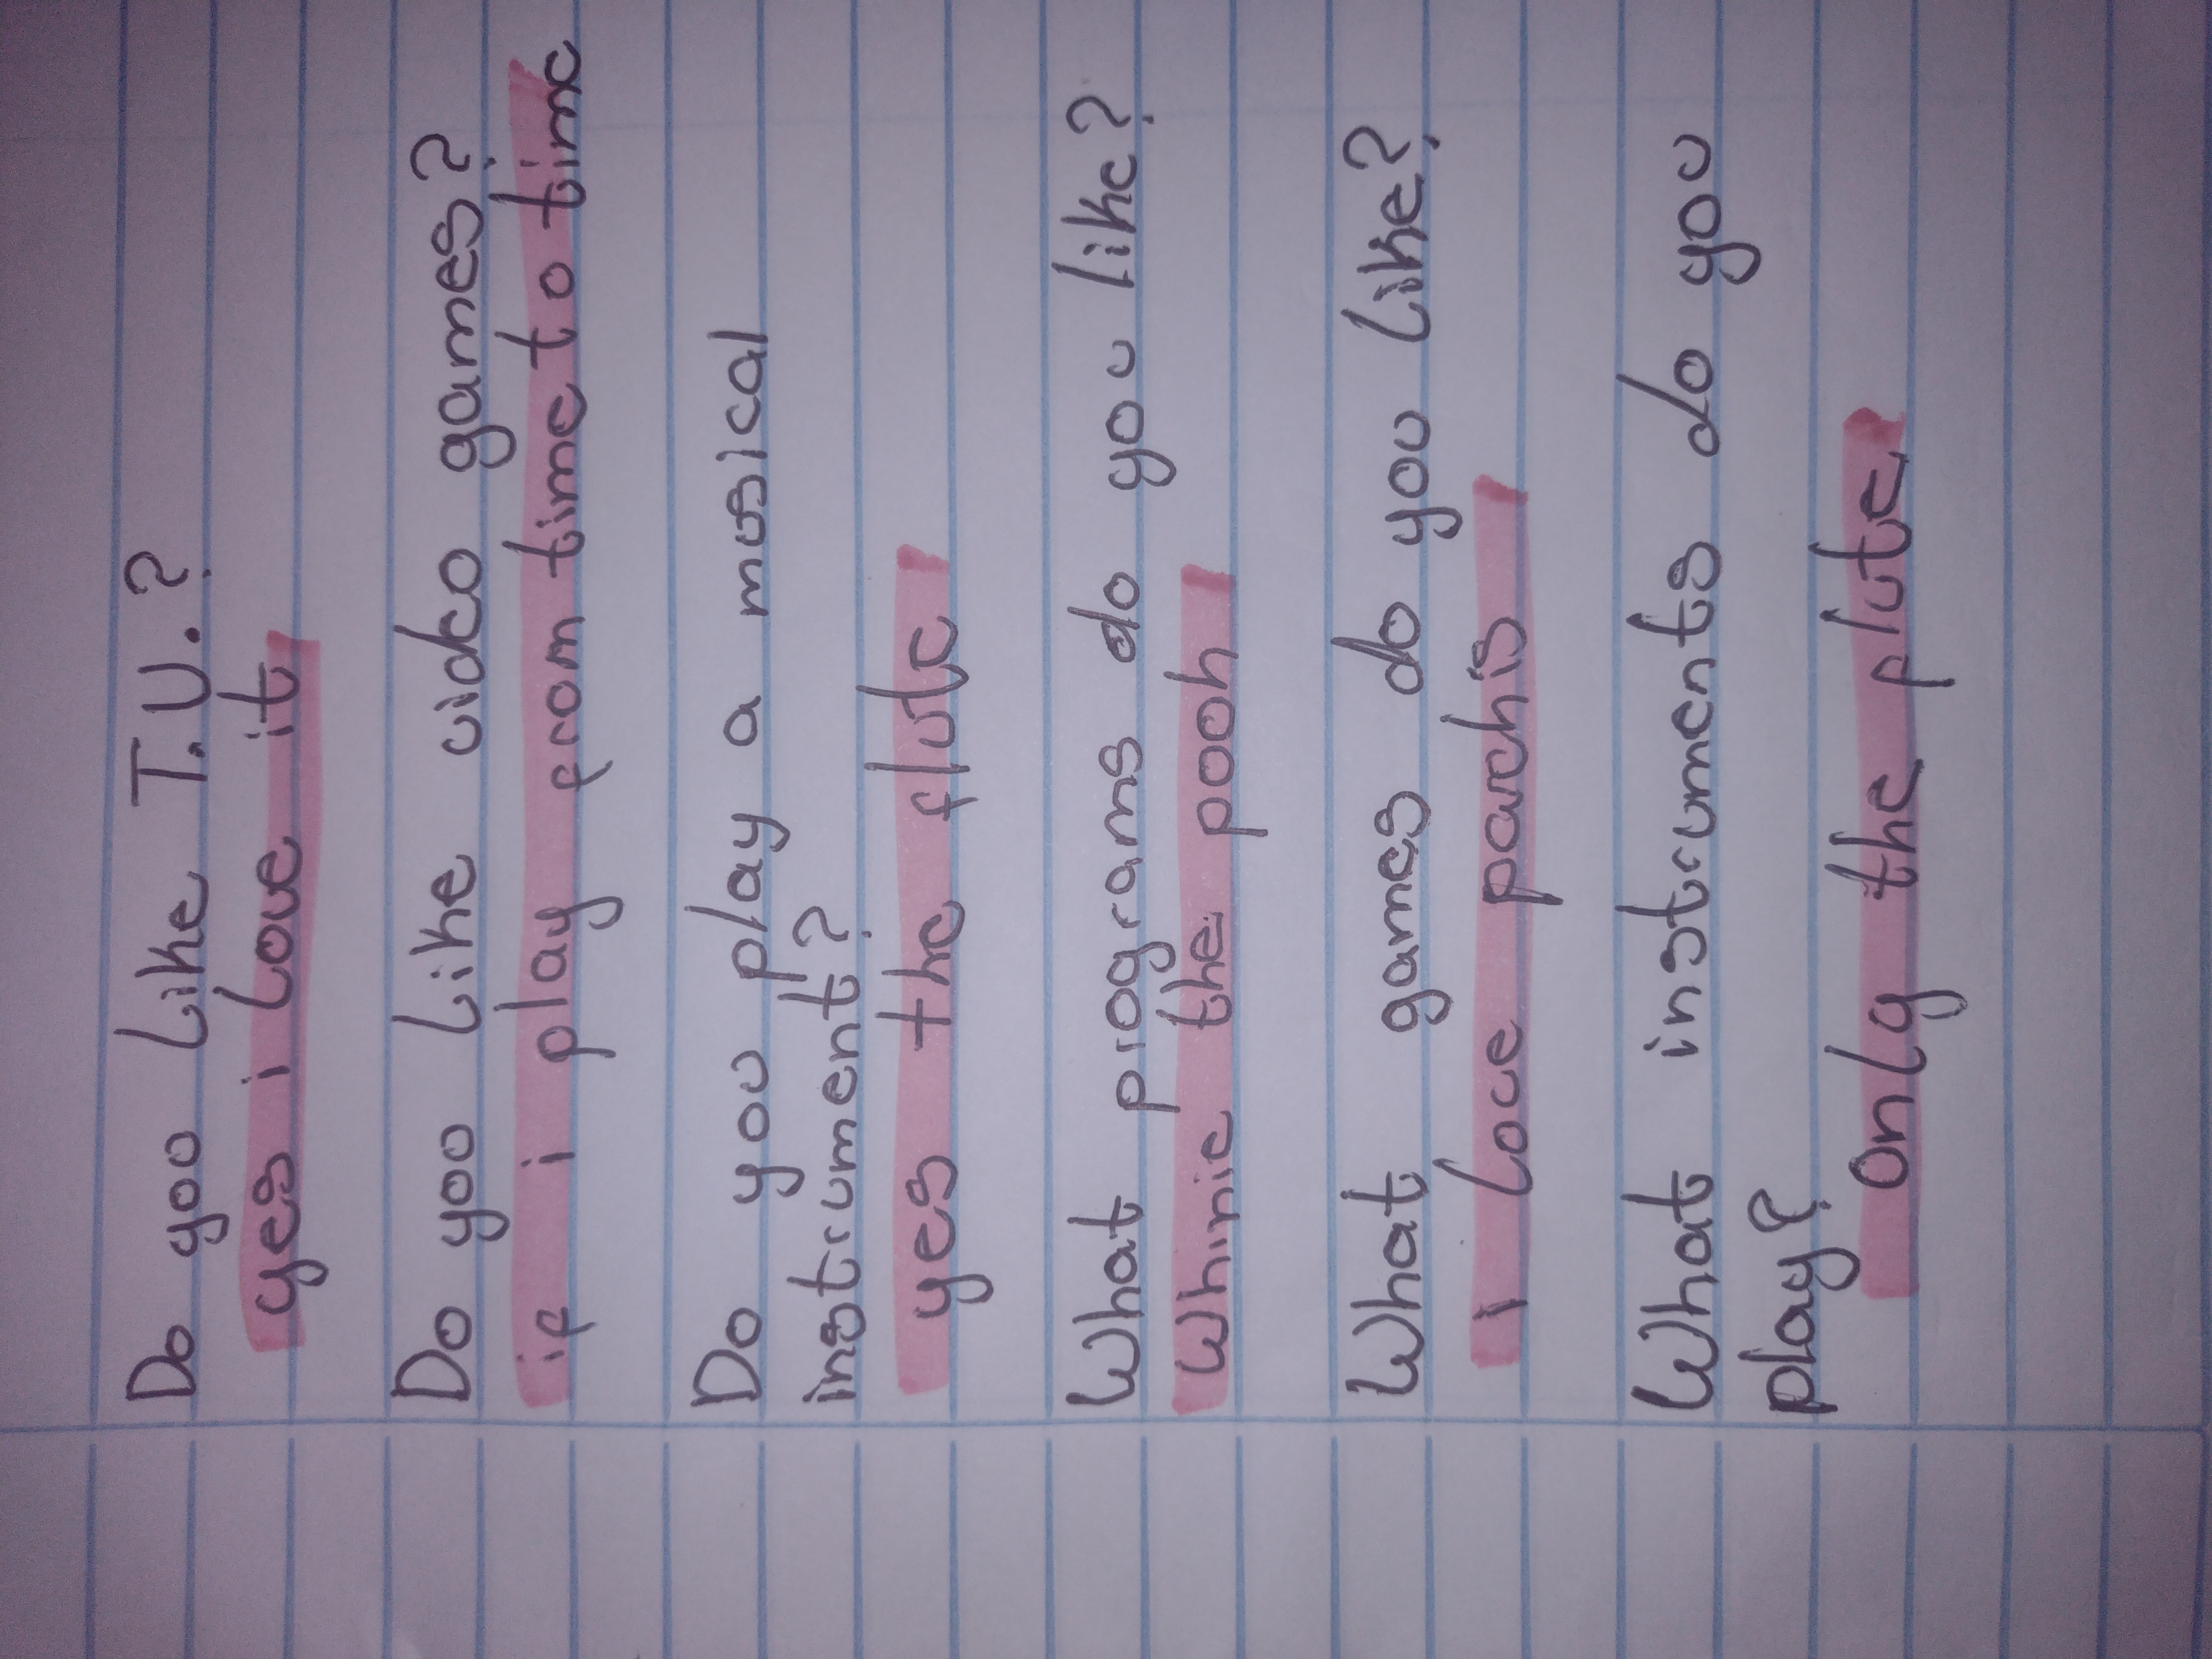 Do you like T.V.?
yes i love it
Do you like video games?
if i play from time to time
Do you play a musical
instrument?
yes the flute
What programs do you like?
Whinie the pooh
What games do you like?
i love parchis
What instruments do you
play?
only the plute